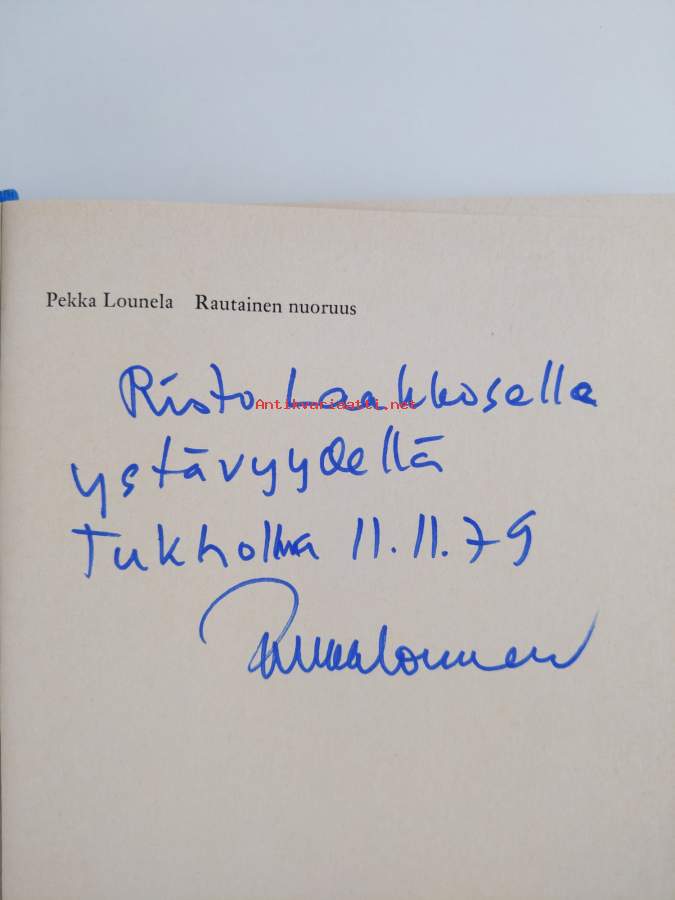 Pekka Lounela Rautainen nuoruus
Risto Laakkosella
Antikvariaatti.net
ystävyydellä
Tukholma 11.11.79
Pekka Lounela